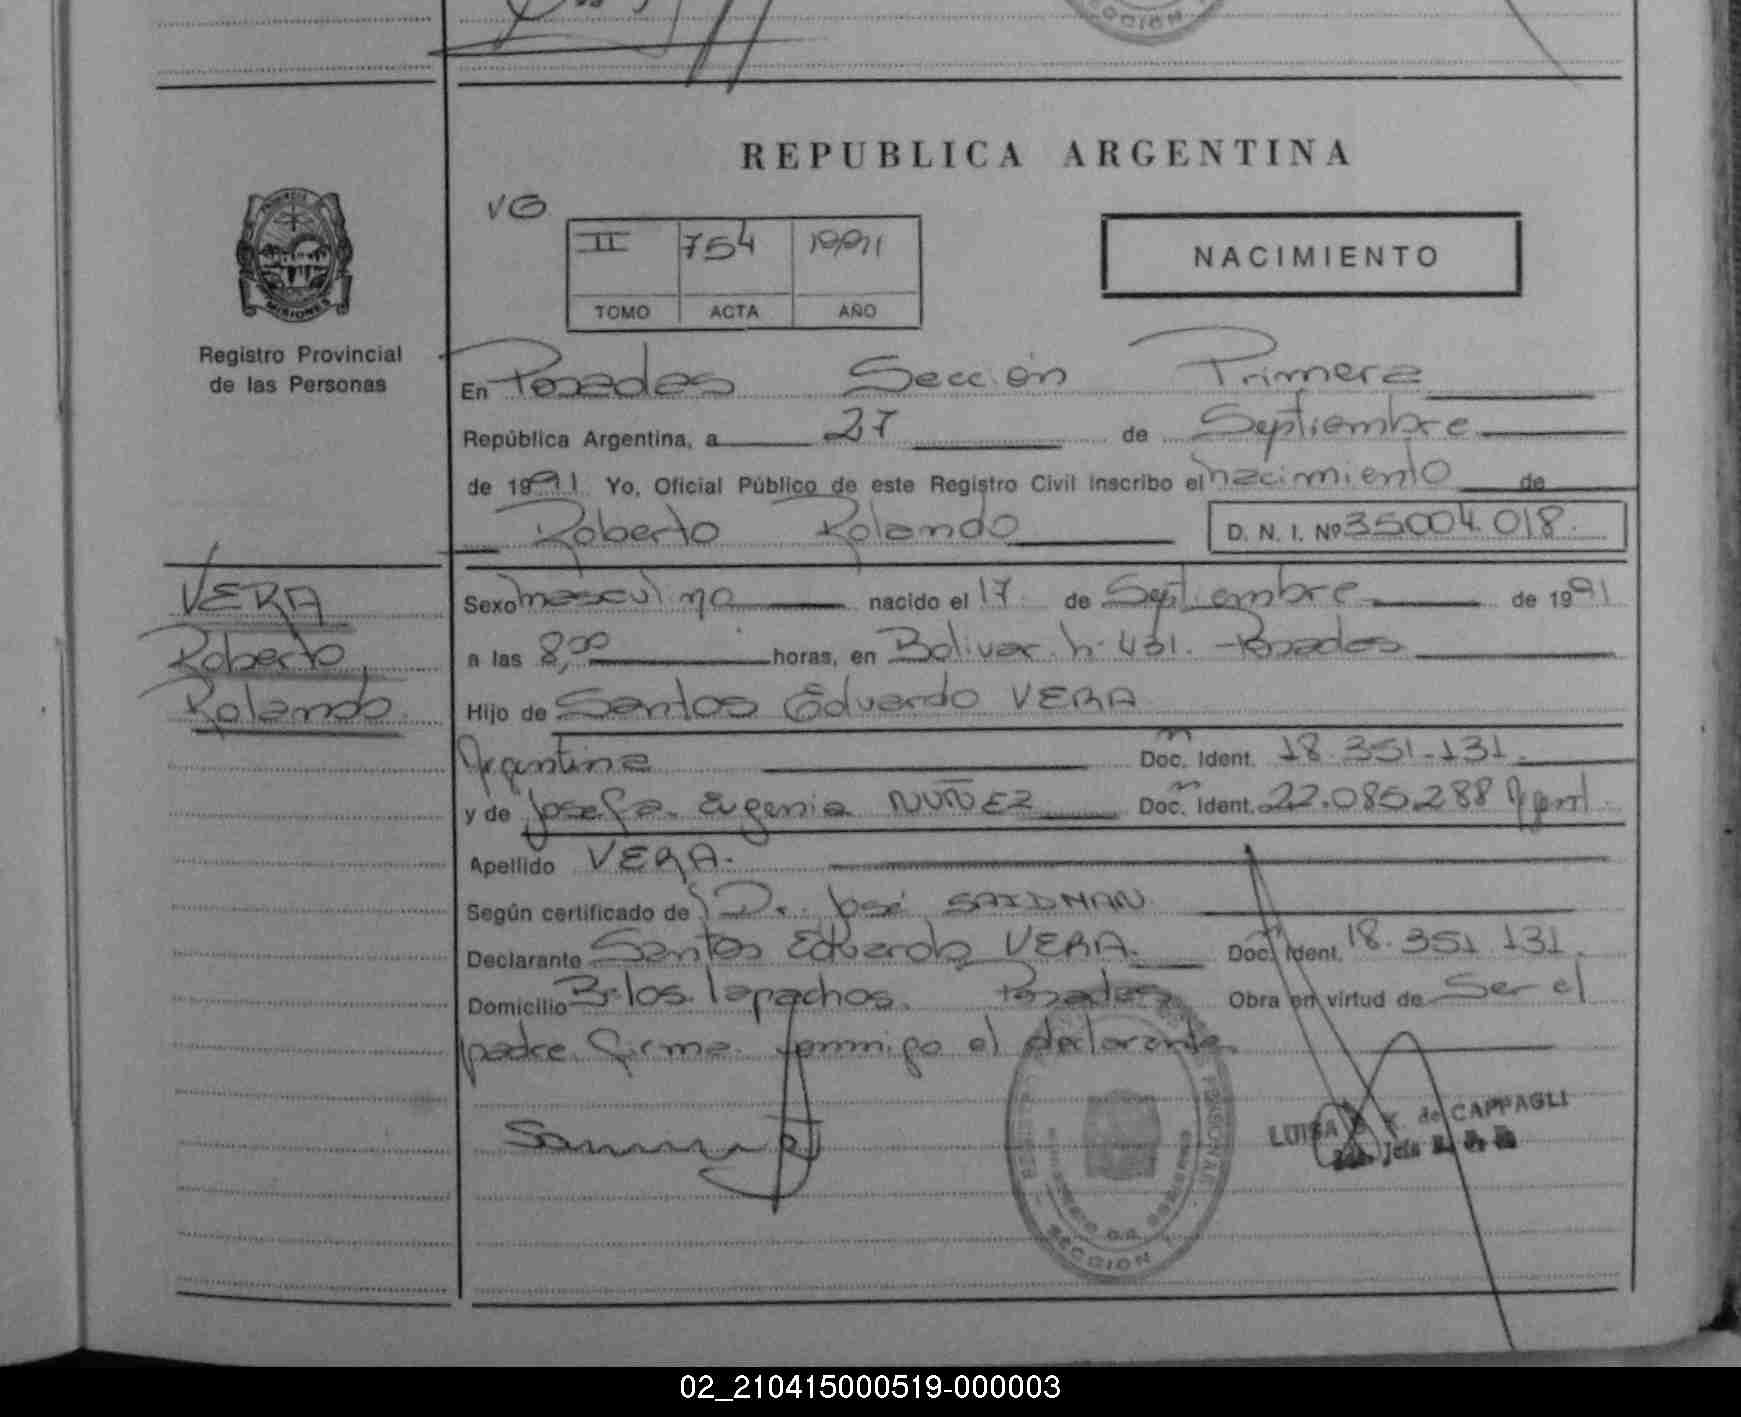 SECCION
REPUBLICA ARGENTINA
VG
II 754 1991
TOMO ACTA AÑO
NACIMIENTO
MISIONES
Registro Provincial
de las Personas
En Posadas Sección Primera
República Argentina, a 27 de Septiembre
de 1991 Yo, Oficial Público de este Registro Civil inscribo el nacimiento de
Roberto Rolando D. N. I. Nº 35004.018.
VERA
Roberto
Rolando
Sexo masculino nacido el 17 de Septiembre de 1991
a las 8,00 horas, en Bolivar n. 431. Posadas
Hijo de Santos Eduardo VERA
Argentina Doc. Ident. 18.351.131.
y de Josefa Eugenia NUÑEZ Doc. Ident. 22.085.288 Argent.
Apellido VERA.
Según certificado de Dr. José SAIDMAN
Declarante Santos Eduardo VERA. Doc. Ident. 18.351 131.
Domicilio Bº los lapachos. Posadas Obra en virtud de Ser el
padre. firma conmigo el declarante
LUISA K. de CAPPAGLI
Jefa
SECCION
02_210415000519-000003